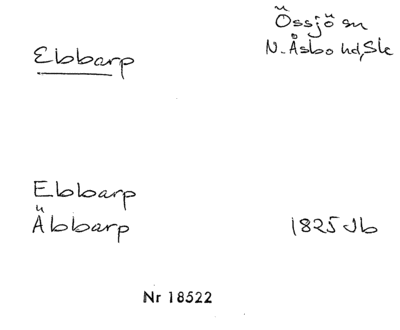 Össjö sn
Ebbarp
N. Åsbo hd, Sk
Ebbarp
Äbbarp
1825 Jb
Nr 18522